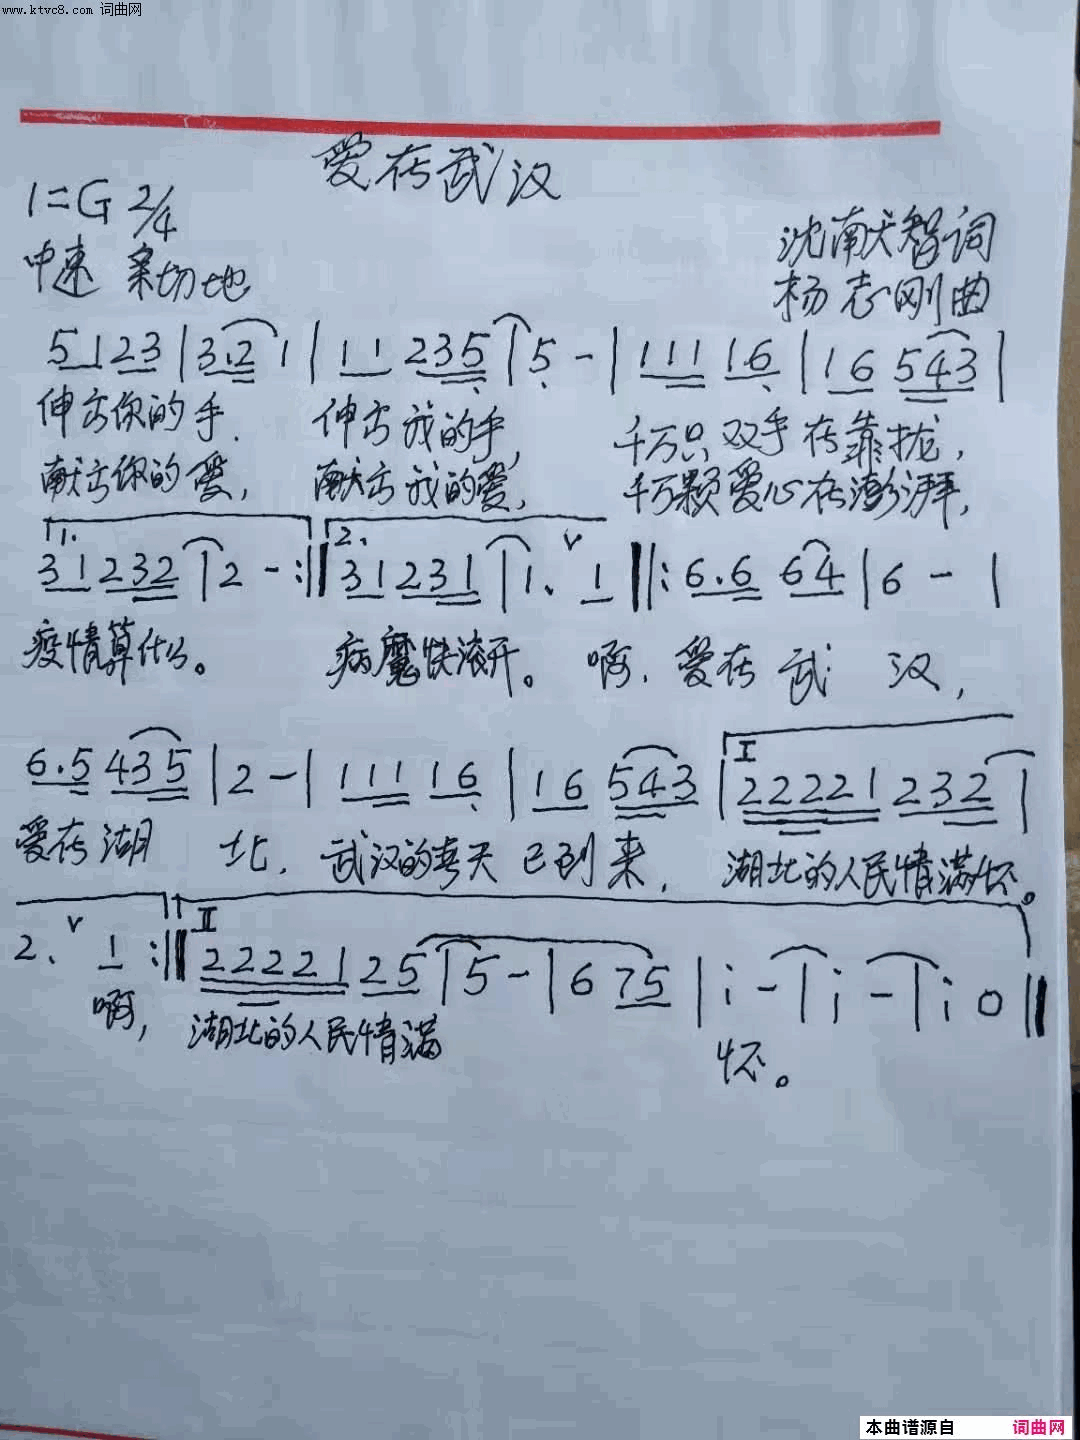 www.ktvc8.com 词曲网
爱在武汉
1=G 2/4
中速 亲切地
沈献智词
杨志刚曲
5 1 2 3 | 3.2 1 | 1 1 2 3 5 | 5 - | 1 1 1 1 6 | 1 6 5 4 3 |
伸出你的手. 伸出我的手, 千万只双手在靠拢,
献出你的爱, 献出我的爱, 千万颗爱心在澎湃,
1. 2. V
3 1 2 3 2 | 2 - :‖ 3 1 2 3 1 | 1. 1 ‖: 6.6 6 4 | 6 - |
疫情算什么。 病魔快滚开。 啊, 爱在武 汉,
I
6.5 4 3 5 | 2 - | 1 1 1 1 6 | 1 6 5 4 3 | 2 2 2 2 1 2 3 2 |
爱在湖 北, 武汉的春天已到来, 湖北的人民情满怀。
V II
2. 1 :‖ 2 2 2 2 1 2 5 | 5 - | 6 7 5 | i - | i - | i 0 ‖
啊, 湖北的人民情满 怀。
本曲谱源自 词曲网